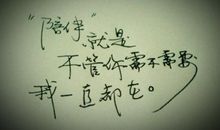 “陪伴”就是
不管你需不需要
我一直都在。